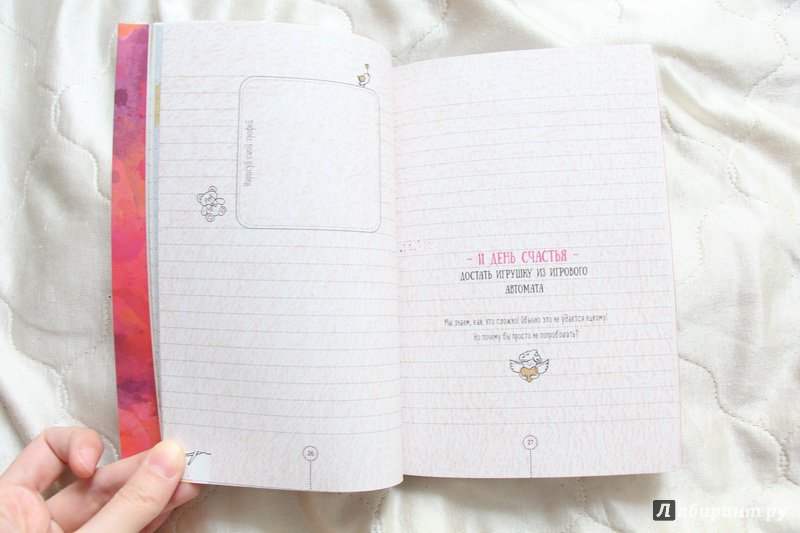 Нарисуй свой трофей
26
- 11 ДЕНЬ СЧАСТЬЯ -
ДОСТАТЬ ИГРУШКУ ИЗ ИГРОВОГО
АВТОМАТА
Мы знаем, как это сложно! Обычно это не удается никому!
Но почему бы просто не попробовать?
27
Лабиринт.ру